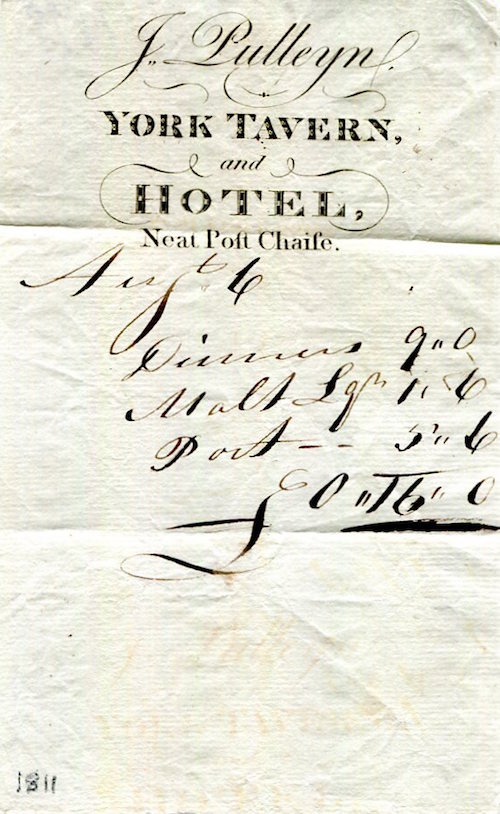 J. Pulleyn.
YORK TAVERN,
and
HOTEL,
Neat Poſt Chaiſe.
Augt 6
Dinners 9〃0
Malt Lqr 1〃6
Port -- 5〃6
£0〃16〃0
1811